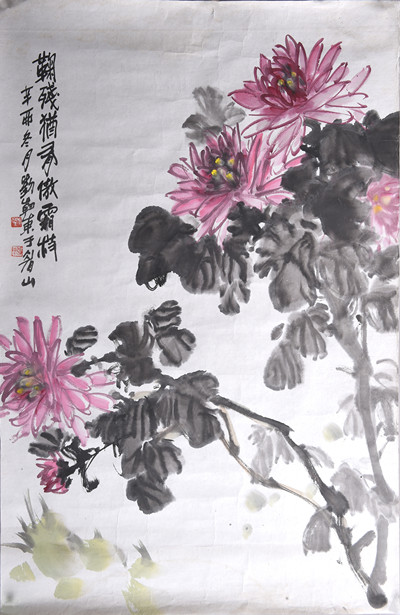 鞠残猶有傲霜枝
辛酉冬月劉
東于
山